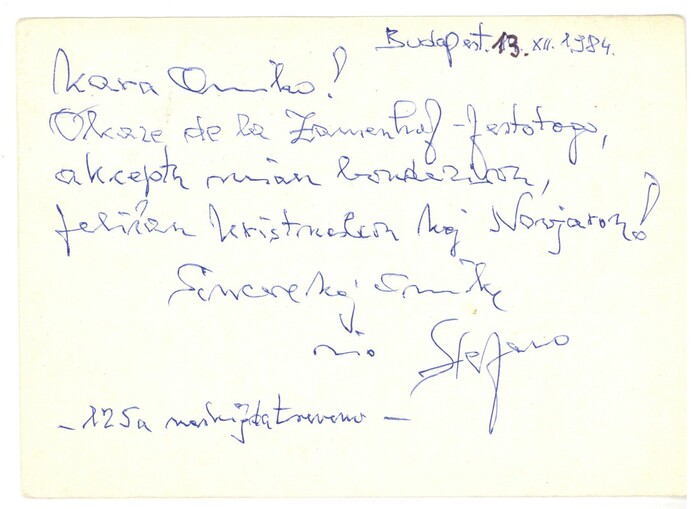 Budapest. 13. XII. 1984.
Kara Amiko!
Okaze de la Zamenhof-festotago,
akceptu mian bondeziron,
feliĉan kristnaskon kaj Novjaron!
Sincere kaj amike
via Stefano
- 125a naskiĝdatreveno -